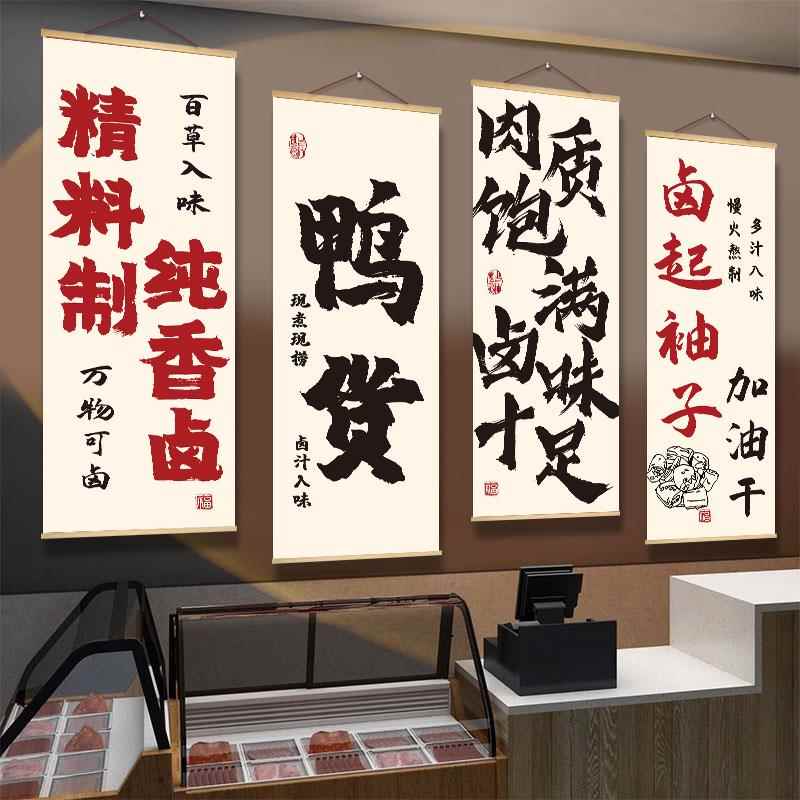 百草入味
精料制
纯香卤
万物可卤
鸭货
现煮现捞
卤汁入味
肉质饱满
卤味十足
多汁入味
慢火熬制
卤起袖子
加油干
福
福